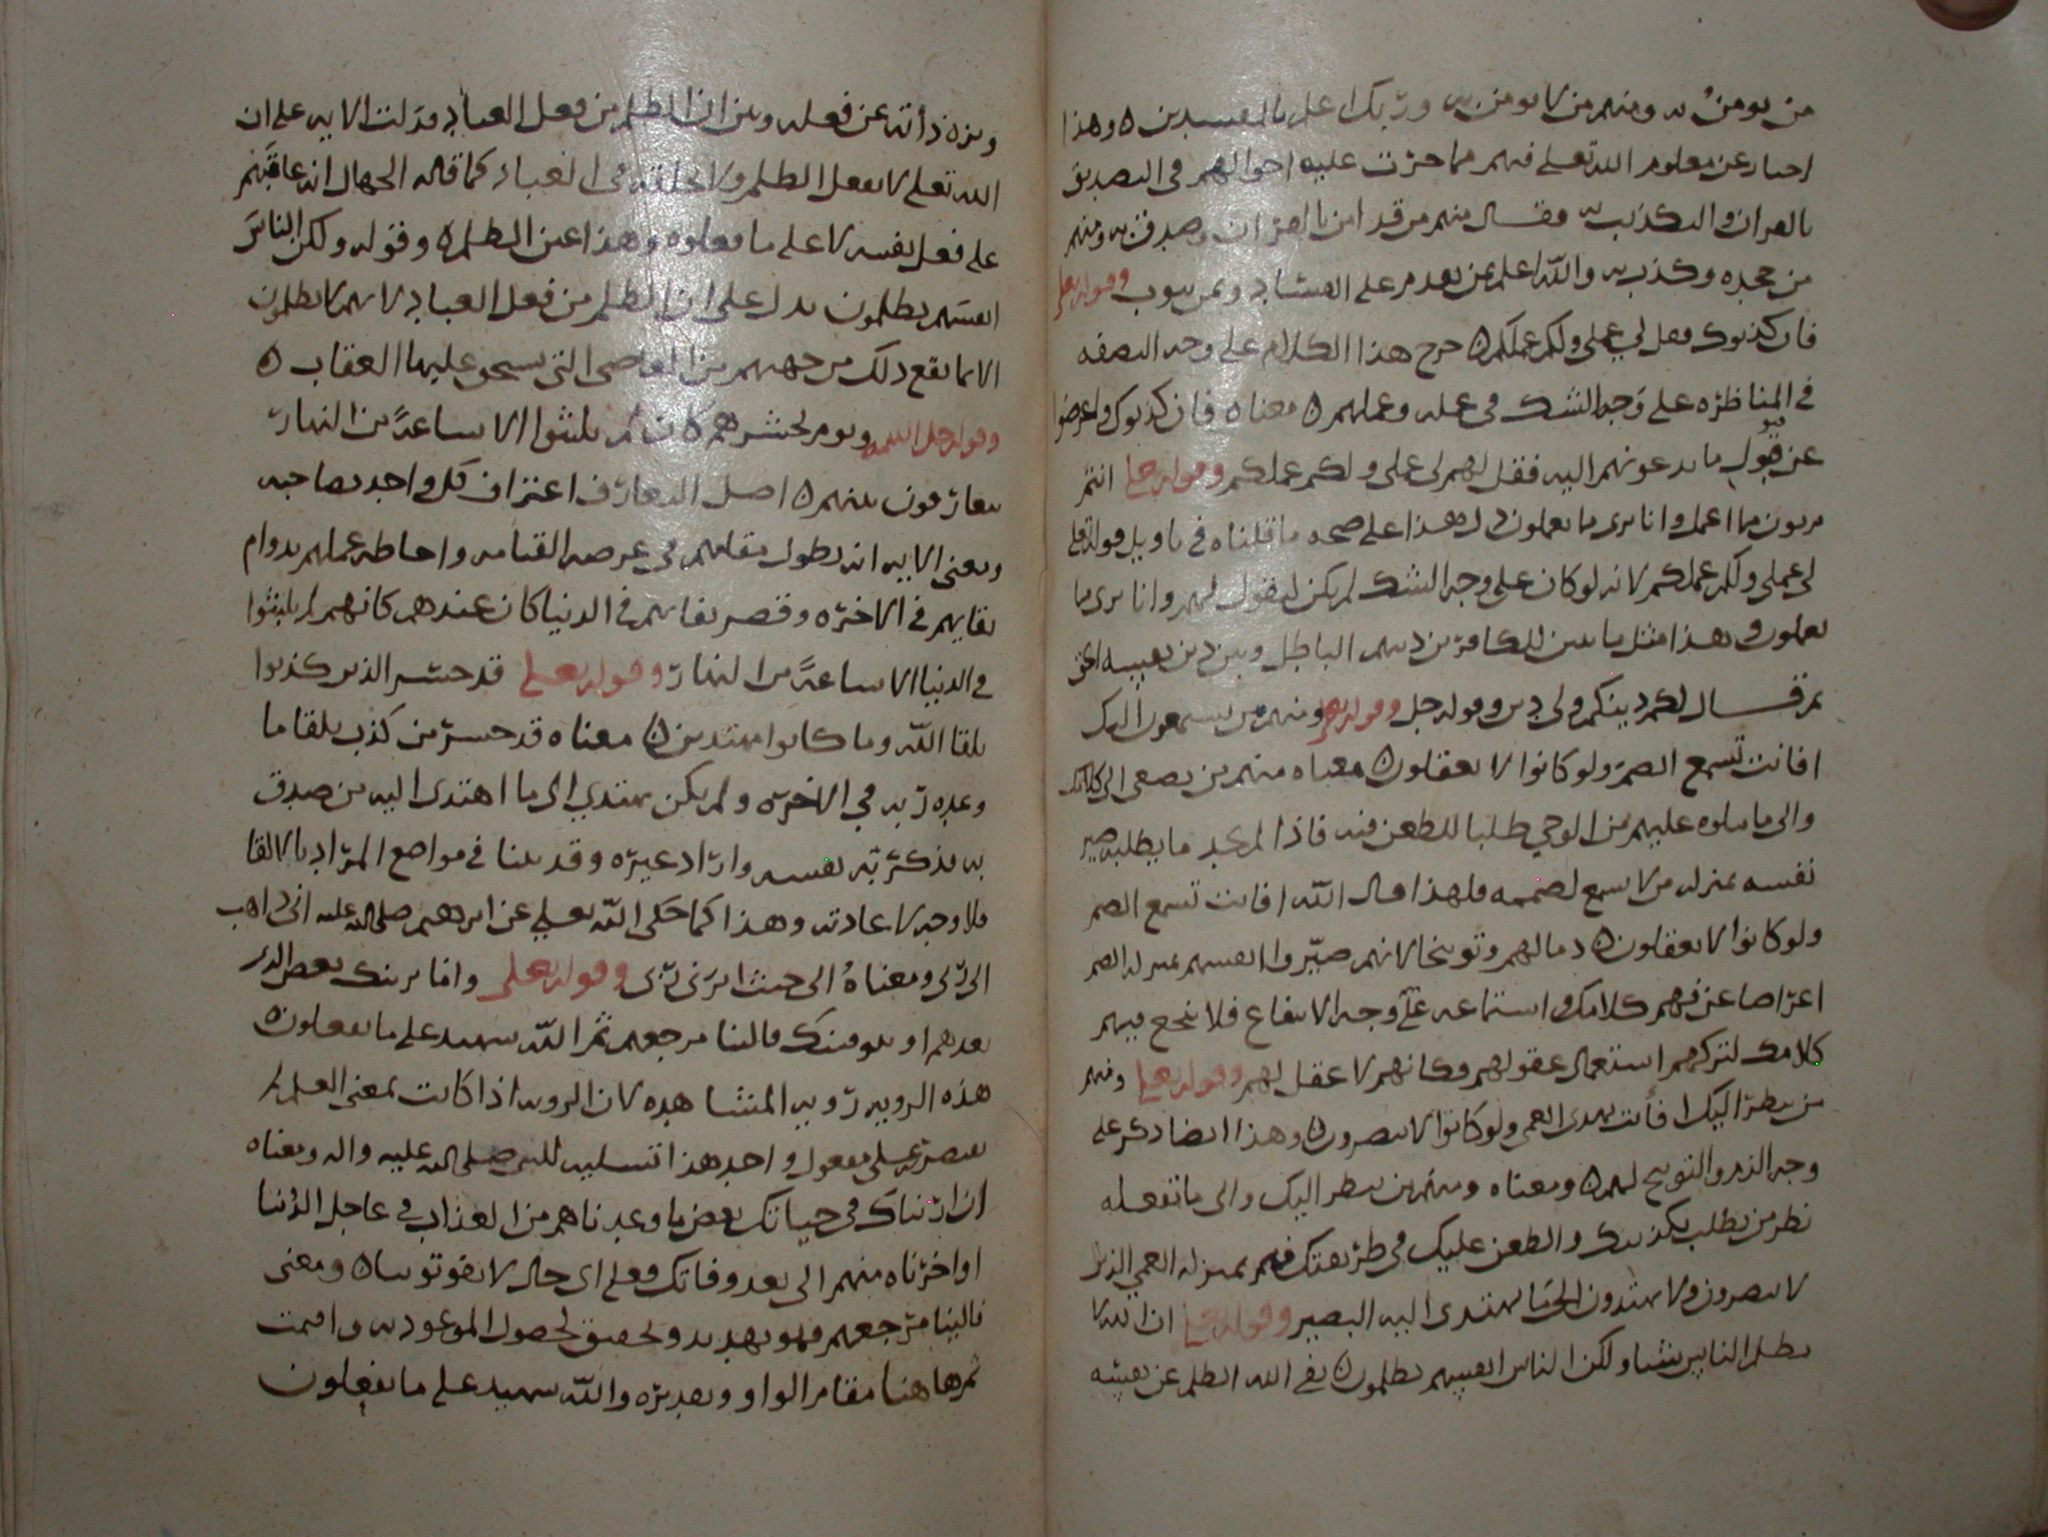 من يومن به ومنهم من لا يومن به وربك اعلم بالمفسدين ه وهذا
اخبار عن معلوم الله تعلى فيهم مما جرت عليه احوالهم في التصديق
بالقران والتكذيب به فقال منهم من قد امن بالقران وصدق به ومنهم
من جحده وكذب به والله اعلم بمن يقدم على الفساد وبمن يتوب وقوله تعلى
فان كذبوك فقل لي عملي ولكم عملكم ه خرج هذا الكلام على وجه النصفه
في المناظره على وجه الشك في عمله وعملهم ه معناه فان كذبوك واعرضوا
عن قبول ما تدعونهم اليه فقل لهم لي عملي ولكم عملكم وقوله تعلى انتم
بريون مما اعمل وانا بري مما تعملون دل هذا على صحه ما قلناه في تاويل قوله تعلى
لي عملي ولكم عملكم لانه لو كان على وجه الشك لم يكن ليقول لهم وانا بري مما
تعملون وهذا مثل ما بين للكافرين دينهم الباطل وبين دين نفسه الحق
ثم قال لكم دينكم ولي دين وقوله جل وقوله تعلى ومنهم من يستمعون اليك
افانت تسمع الصم ولو كانوا لا يعقلون ه معناه منهم من يصغى الى كلامك
والى ما تتلوه عليهم من الوحي طلبا للطعن فيه فاذا لم يجد ما يطلبه صير
نفسه بمنزله من لا يسمع لصممه فلهذا قال الله افانت تسمع الصم
ولو كانوا لا يعقلون ه ذما لهم وتوبيخا لانهم صيروا انفسهم بمنزله الصم
اعراضا عن فهم كلامك واستماعه على وجه الانتفاع فلا ينجع فيهم
كلامك لتركهم استعمال عقولهم وكانهم لا عقل لهم وقوله تعلى ومنهم
من ينظر اليك افأنت تهدى العمى ولو كانوا لا يبصرون ه وهذا ايضا ذكر على
وجه الذم والتوبيخ لهم ه ومعناه ومنهم من ينظر اليك والى ما تفعله
نظر من يطلب تكذيبك والطعن عليك في طريقتك فهم بمنزله العمي الذين
لا يبصرون ولا يهتدون الى ما يهتدى اليه البصير وقوله تعلى ان الله لا
يظلم الناس شيا ولكن الناس انفسهم يظلمون ه نفى الله الظلم عن نفسه
ونزه ذاته عن فعله وبين ان الظلم من فعل العباد فدلت الايه على ان
الله تعلى لا يفعل الظلم ولا يخلقه في العباد كما قاله الجهال انه عاقبهم
على فعل نفسه لا على ما فعلوه وهذا عين الظلم ه وقوله ولكن الناس
انفسهم يظلمون يدل على ان الظلم من فعل العباد لانهم لا يظلمون
الا بما يقع ذلك من جهتهم من المعاصى التي يستحق عليها العقاب ه
وقوله جل اسمه ويوم نحشرهم كان لم يلبثوا الا ساعةً من النهار
يتعارفون بينهم ه اصل التعارف اعتراف كل واحد بصاحبه
ومعنى الايه انه بطول مقامهم في عرصه القيامه واحاطه عملهم بدوام
بقايهم في الاخره وقصر بقايهم في الدنيا كان عندهم كانهم لم يلبثوا
في الدنيا الا ساعةً من النهار وقوله تعلى قد خسر الذين كذبوا
بلقا الله وما كانوا مهتدين ه معناه قد خسر من كذب بلقا ما
وعده ربه في الاخره ولم يكن يهتدي الى ما اهتدى اليه من صدق
به فذكر ربه نفسه واراد غيره وقد بينا في مواضع المراد بالالقا
فلا وجه لاعادته وهذا كما حكى الله تعلى عن ابرهيم صلى الله عليه انى ذاهب
الى ربى ومعناهُ الى حيث امرنى ربى وقوله تعلى واما نرينك بعض الذى
نعدهم او نتوفينك فالينا مرجعهم ثم الله شهيد على ما يفعلون ه
هذه الرويه رويه المشاهده لان الرويه اذا كانت بمعنى العلم لم
يقتصر على مفعول واحد هذا تسليه للنبي صلى الله عليه واله ومعناه
ان اريناك في حياتك بعض ما وعدناهم من العذاب في عاجل الدُنيا
او اخرناه منهم الى بعد وفاتك فعلى اى حال لا يفوتوننا ه ومعنى
فالينا مرجعهم فهو تهديد وتحقيق لحصول الموعود به واقيمت
ثم هاهنا مقام الواو وتقديره والله شهيد على ما يفعلون